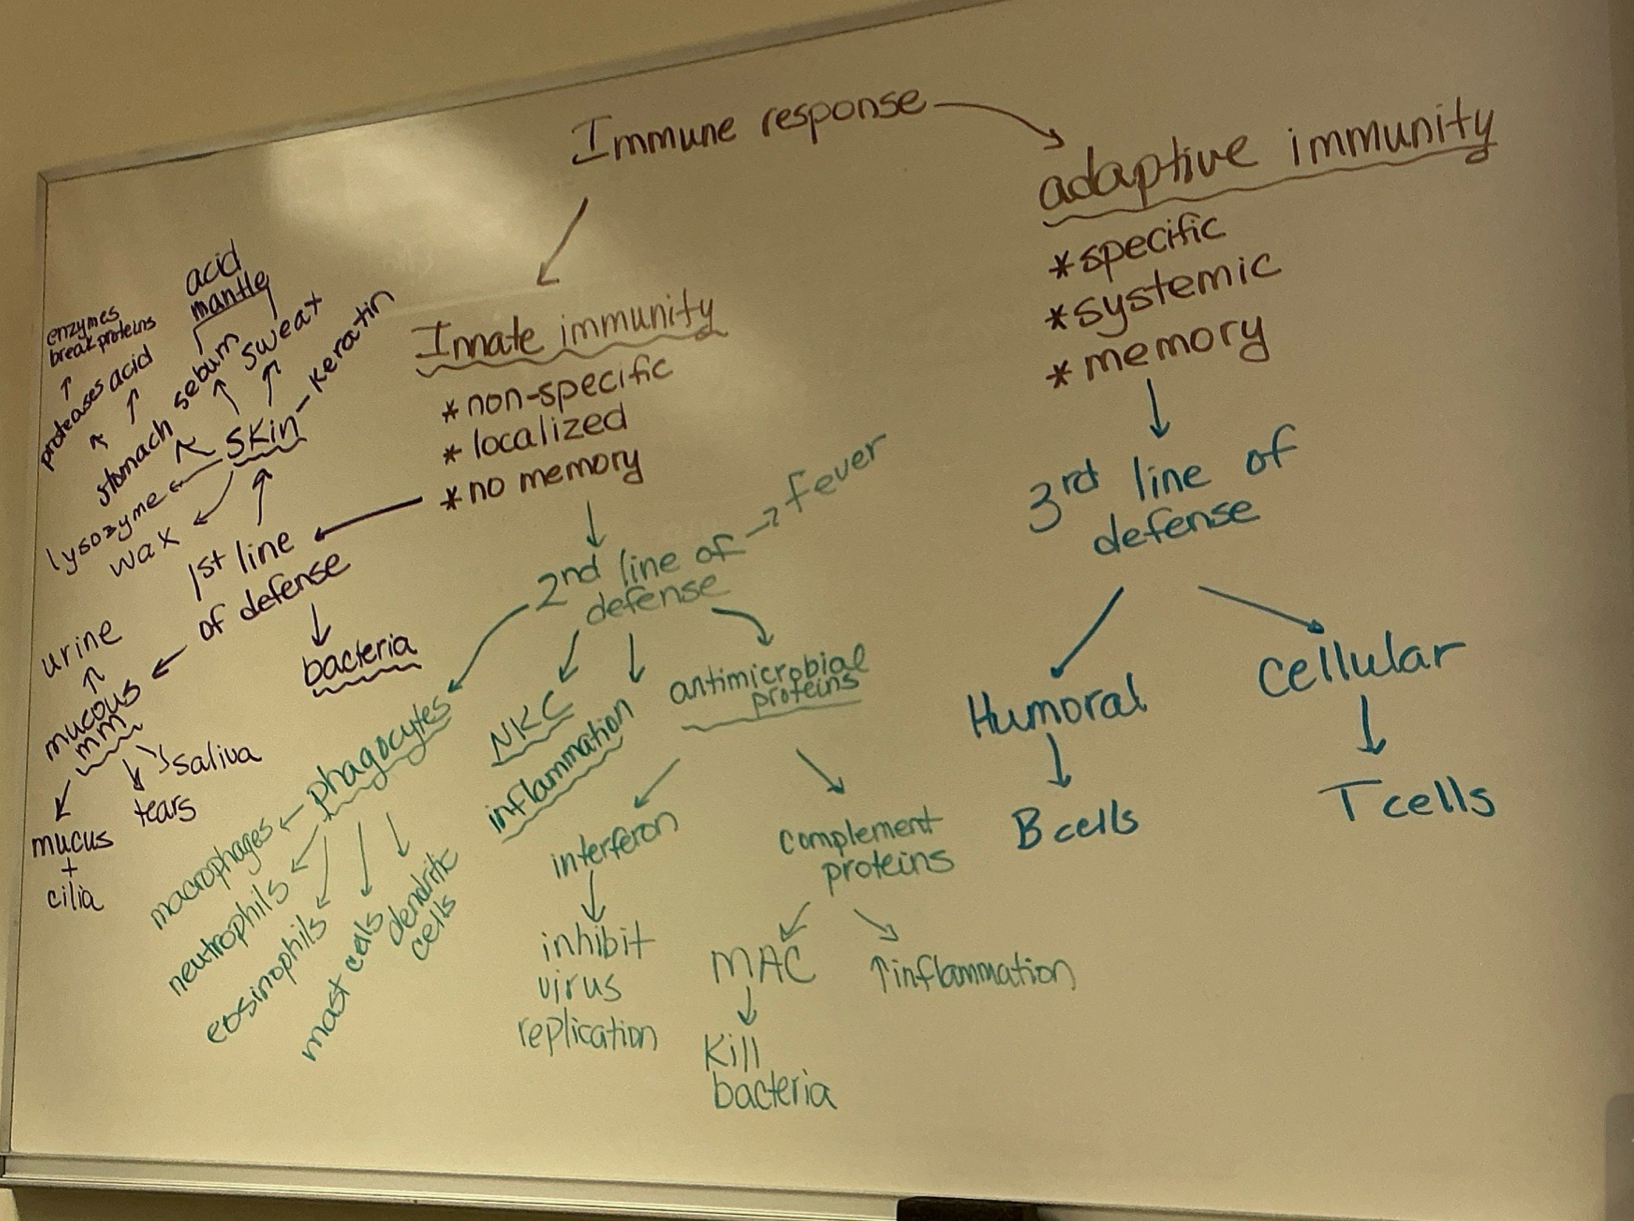 Immune response
adaptive immunity
*specific
*systemic
*memory
3rd line of
defense
Humoral
B cells
Cellular
T cells
Innate immunity
*non-specific
*localized
*no memory
1st line
of defense
bacteria
skin
keratin
sweat
sebum
acid
mantle
stomach
acid
proteases
enzymes
break proteins
lysozyme
wax
mucous
mm
urine
saliva
tears
mucus
+
cilia
2nd line of
defense
Fever
phagocytes
macrophages
neutrophils
eosinophils
mast cells
dendritic
cells
NKC
inflammation
antimicrobial
proteins
interferon
inhibit
virus
replication
complement
proteins
MAC
Kill
bacteria
↑inflammation